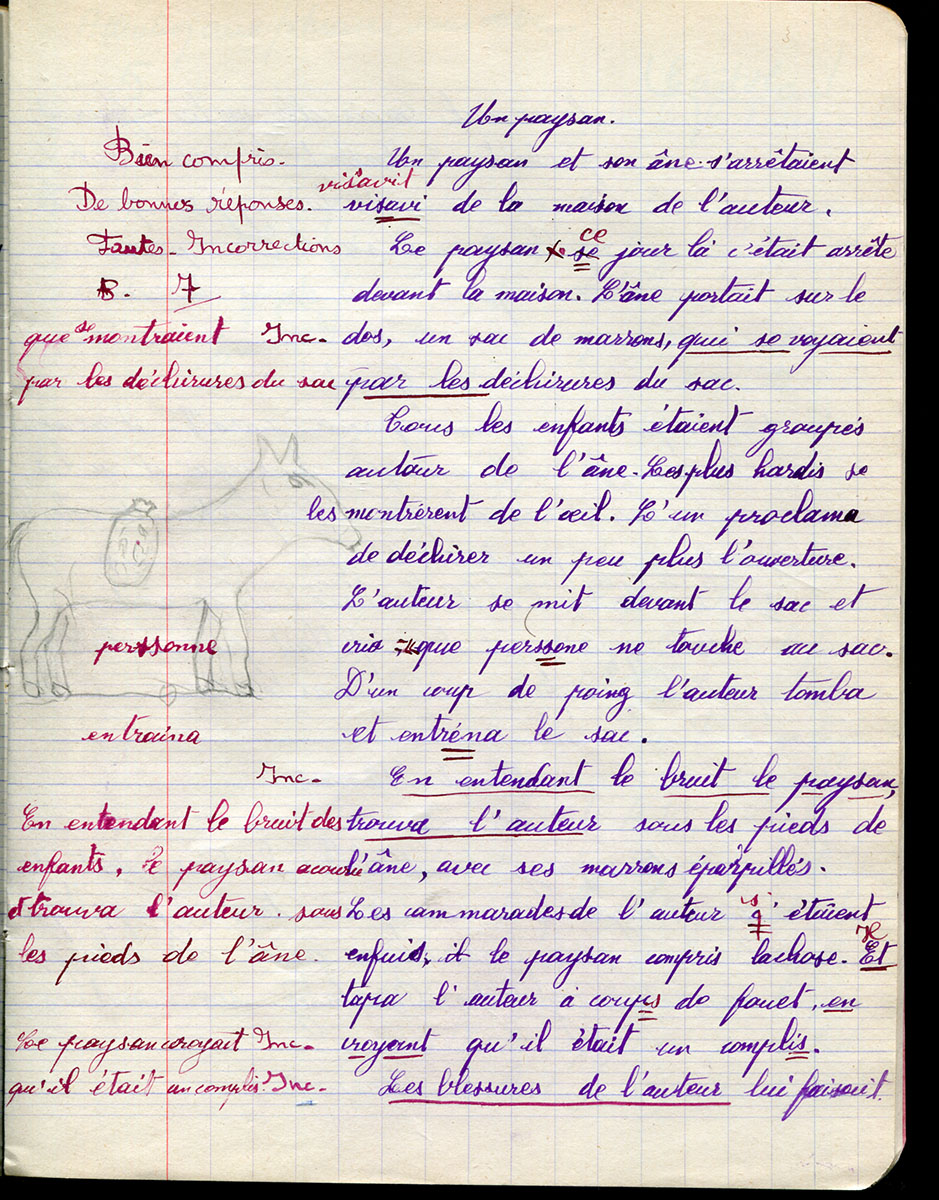 Un paysan.
Bien compris.
Un paysan et son âne s'arrêtaient
vis'avit
De bonnes réponses.
visavi de la maison de l'auteur.
ce
Fautes - Incorrections
Le paysan se jour là c'était arrête
B. 7
devant la maison. L'âne portait sur le
que se montraient Inc-
dos, un sac de marrons, qui se voyaient
par les déchirures du sac
par les déchirures du sac.
Tous les enfants étaient groupés
autour de l'âne. Les plus hardis se
les montrèrent de l'œil. L'un proclama
de déchirer un peu plus l'ouverture.
L'auteur se mit devant le sac et
personne
cria que perssone ne touche au sac.
D'un coup de poing l'auteur tomba
entraina
et entréna le sac.
Inc-
En entendant le bruit le paysan,
En entendant le bruit des
trouva l'auteur sous les pieds de
enfants, le paysan accourut
l'âne, avec ses marrons éparpillés.
et trouva l'auteur sous
Les cammarades de l'auteur s' étaient
les pieds de l'âne.
enfuis, et le paysan compris lachose. Et
Il
tapa l'auteur à coups de fouet, en
Le paysan croyait Inc-
croyant qu'il était un complis.
qu'il était un complis Inc-
Les blessures de l'auteur lui faisait